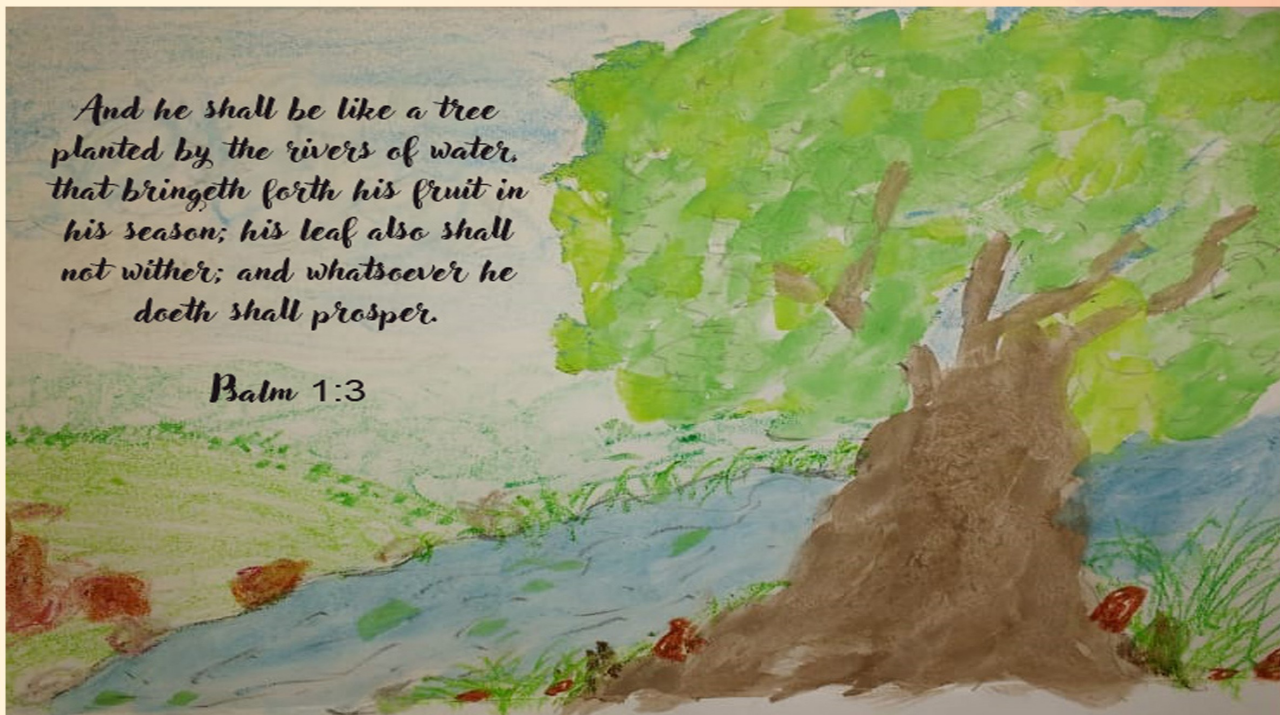 And he shall be like a tree
planted by the rivers of water,
that bringeth forth his fruit in
his season; his leaf also shall
not wither; and whatsoever he
doeth shall prosper.
Psalm 1:3